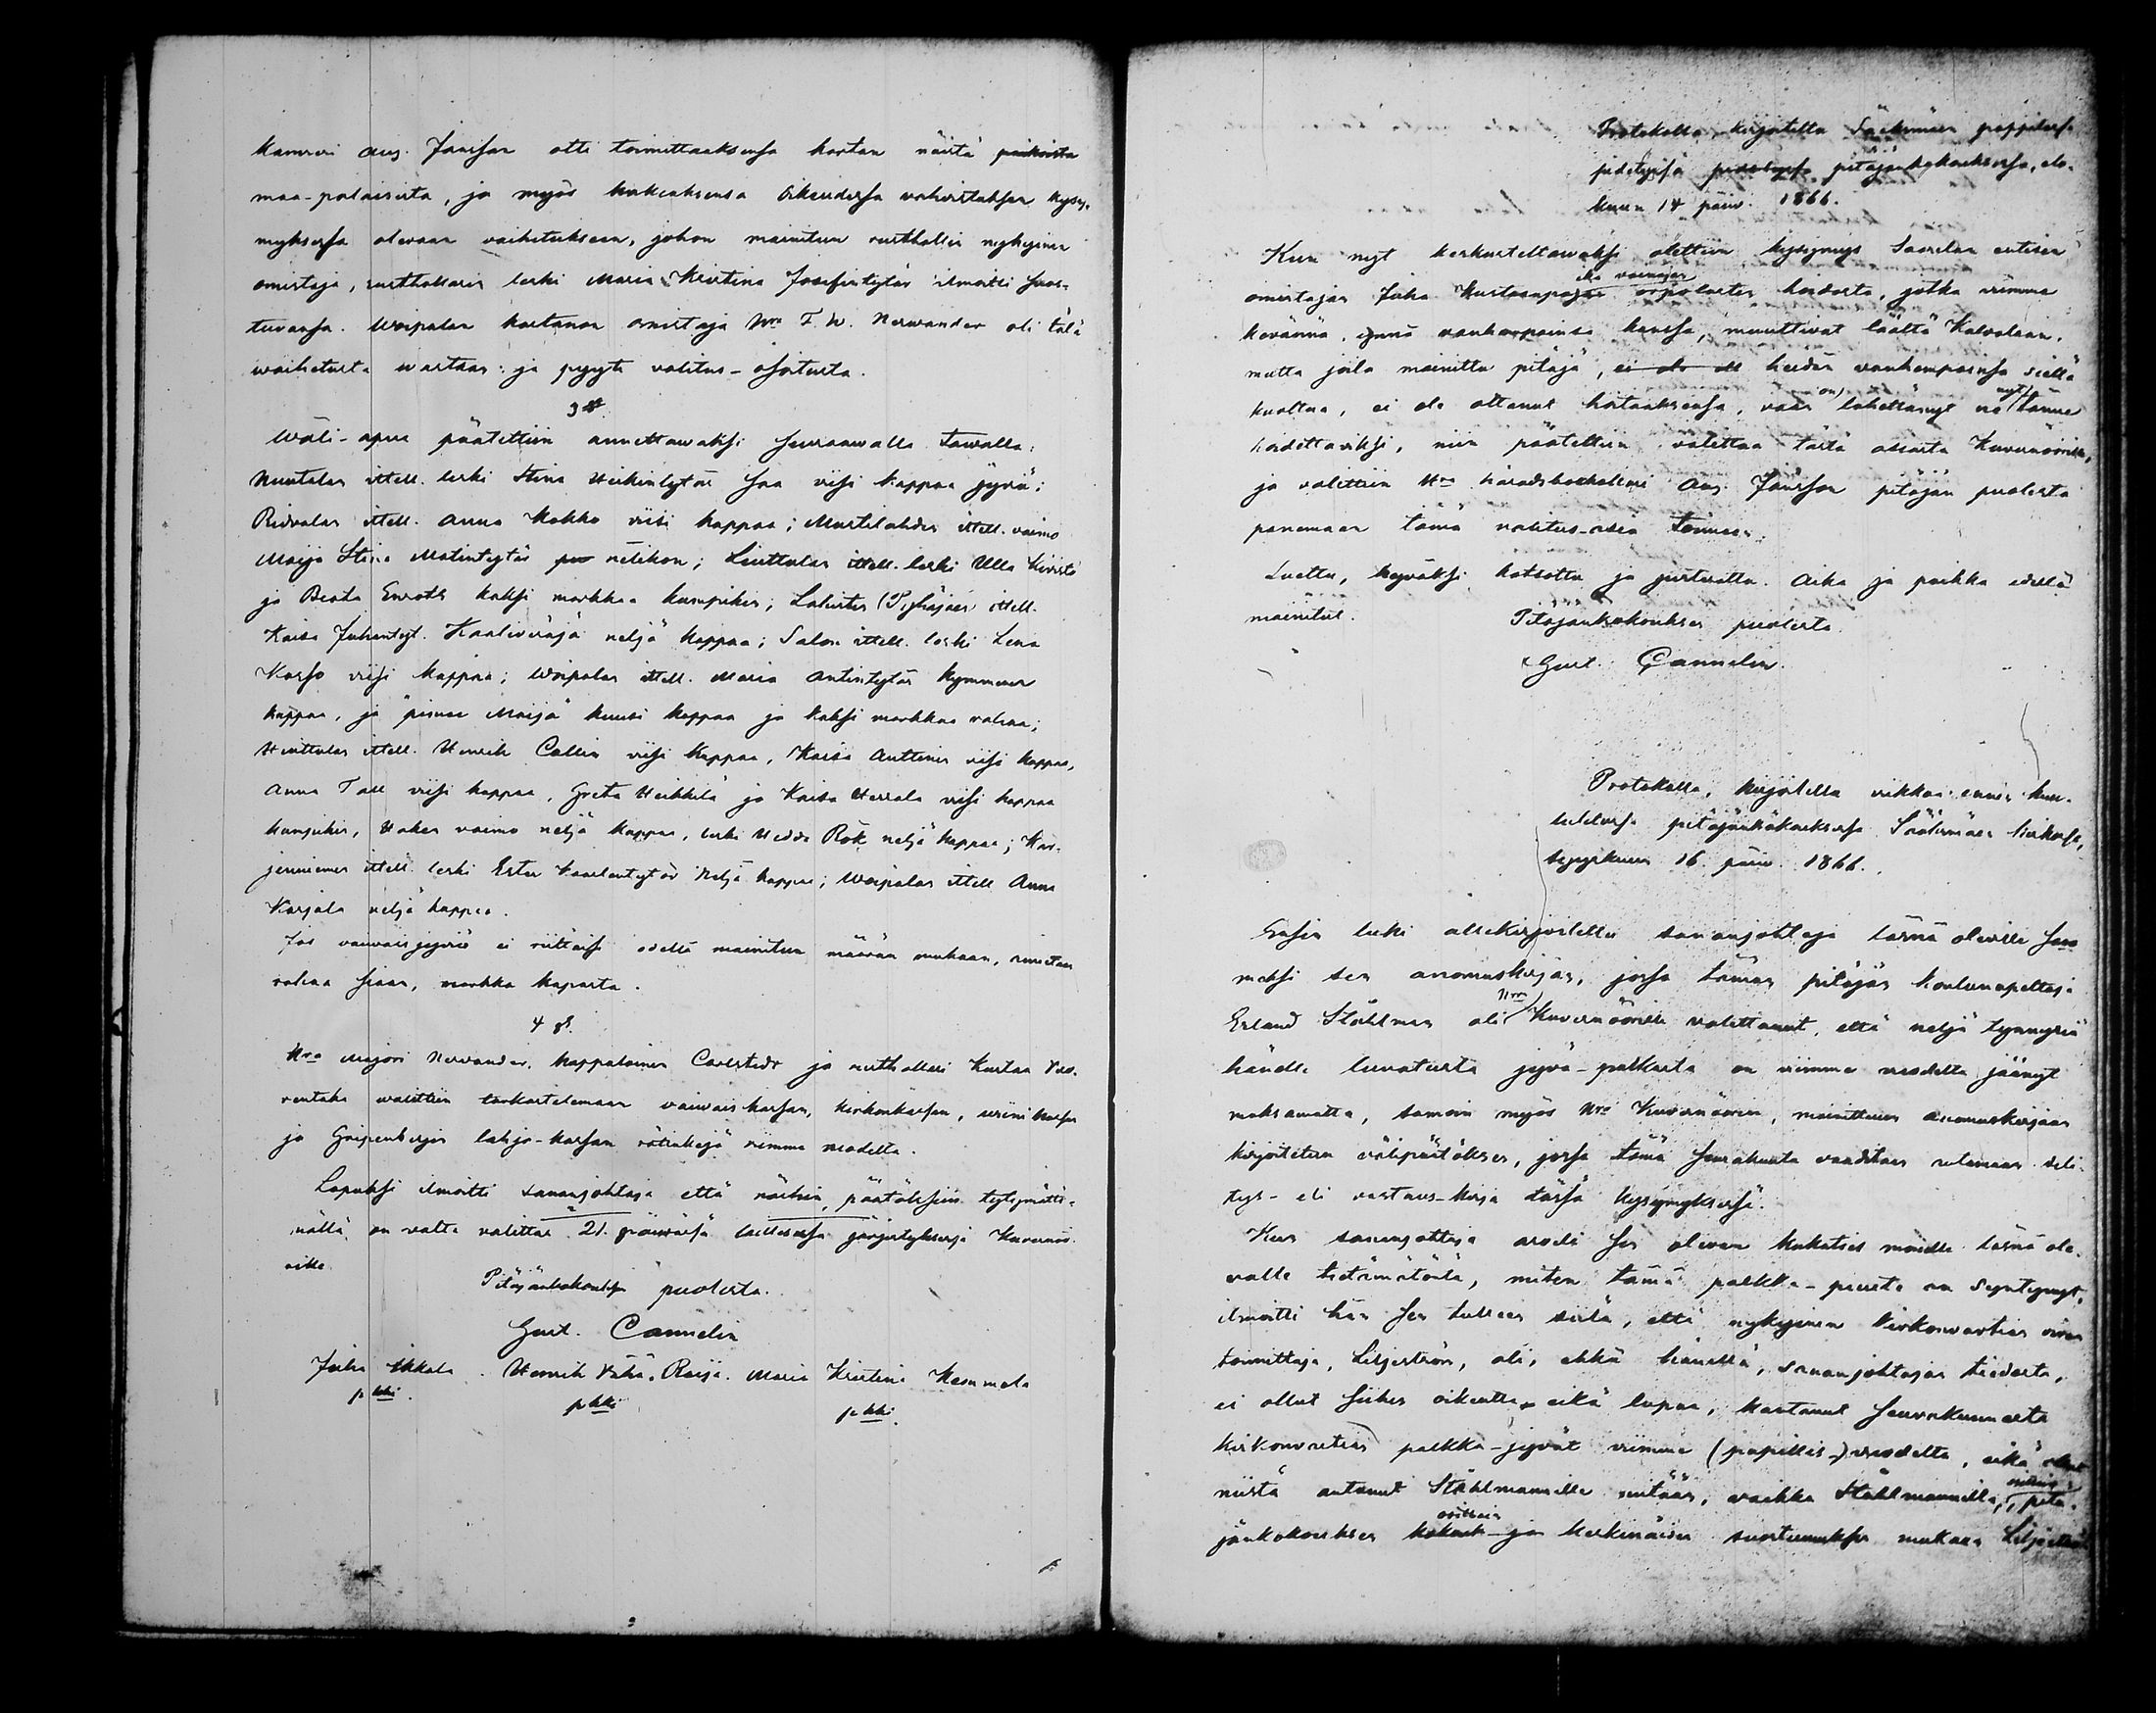 kamreri Aug. Jansson otti toimittaaksensa kartan näistä paikoista
maa-palaisista, ja myös hakeaksensa Oikeudessa vahvistuksen kysy-
myksessä olevaan vaihetukseen, johon mainitun rusthollin nykyinen
omistaja, rusthollarin leski Maria Kristina Josefintytär ilmoitti suos-
tuvansa. Woipalan kartanon omistaja Hrra F. W. Nervander oli tätä
waihetusta wastaan ja pyyti valitus-osoitusta.
3 §.
Wäli-apua päätettiin annettawaksi seuraawalla tawalla:
Huntalan ittell. leski Stina Heikintytär saa viisi kappaa jyviä;
Ridvalan ittell. Anna Kokko viisi kappaa; Muntilahden ittell. vaimo
Maija Stina Matintytär nelikon; Liuttulan ittell. leski Ulla Kivistö
ja Beata Enroth kaksi markkaa kumpikin; Lahisten (Pyhäjäen) ittell.
Kaisa Juhantyt. Kaaliveräjä neljä kappaa; Salon ittell. leski Lena
Karso viisi kappaa; Woipalan ittell. Maria Antintytär kymmenen
kappaa, ja "pisnee Maija" kuusi kappaa ja kaksi markkaa rahaa;
Huittulan ittell. Henrik Callin viisi kappaa, Kaisa Anttinen viisi kappaa,
Anna Tall viisi kappaa, Greta Heikkilä ja Kaisa Herrala viisi kappaa
kumpikin, Haken vaimo neljä kappaa, leski Hedda Rök neljä kappaa; Kar-
jenniemen ittell. leski Ester Kaarlentytär neljä kappaa; Woipalan ittell Anna
Karjala neljä kappaa.
Jos vaivaisjyviä ei riittäisi edellä mainitun määrän mukaan, annetaan
rahaa siaan, markka kaparta.
4 §.
Hrra Majori Nervander, kappalainen Carlstedt ja rusthollari Kustaa Vas-
rentaka walittiin tarkastelemaan vaivaiskassan, kirkonkassan, viinikassan
ja Gripenbergin lahja-kassan rätinkejä viimme vuodelta.
Lopuksi ilmoitti Sananjohtaja että näihin päätöksiin tytymättö-
mällä, on valta valittaa 21. päiwässä laillisessa järjestyksessä Kuvernöö-
rille.
Pitäjänkokouksen puolesta.
Gust. Cannelin
Juha Ikkala. Henrik Vähä-Raija. Maria Kristina Kasumala
pkki. pkki pkki.
Protokolla, kirjoitettu Sääksmäen pappilassa
pidetyssä pitäjänkokouksessa, elo-
kuun 14 päiv. 1866.
Kun nyt keskusteltawaksi otettiin kysymys Saarelan entisen
eikä vaimojan
omistajan Juha Kustaanpojan orpolasten hoidosta, jotka viimme
keväännä, ynnä vanhempainsa kanssa, muuttivat täältä Kalvolaan,
mutta joita mainittu pitäjä, ei ole heidän vanhempainsa siellä
on nyt
kuoltua, ei ole ottanut hoitaaksensa, vaan lähettänyt ne tänne
hoidettaviksi, niin päätettiin valittaa tästä asiasta Kuvernöörille,
ja valittiin Hrra häradsbokhollari Aug. Jansson pitäjän puolesta
panemaan tämä valitus-asia toimeen.
Luettu, hyväksi katsottu ja justeerattu. Aika ja paikka edellä
mainitut.
Pitäjänkokouksen puolesta.
Gust. Cannelin.
Protokolla, kirjoitettu viikkoa ennen kuu-
lutetussa pitäjänkokouksessa Sääksmäen kirkossa,
syyskuun 16. päiv. 1866.
Ensin luki allekirjoitettu sananjohtaja läsnä oleville sano-
maksi sen anomuskirjan, jossa tämän pitäjän koulunopettaja
Hrra
Erland Ståhlman oli Kuvernöörille valittanut, että neljä tynnyriä
hänelle luvatusta jyvä-palkasta on viimme vuodelta jäänyt
maksamatta, samoin myös Hrra Kuvernöörin, mainittuun anomuskirjaan
kirjoitetun välipäätöksen, jossa tämä seurakunta vaaditaan antamaan seli-
tys- eli vastaus-kirja tässä kysymyksessä.
Kun sananjohtaja arveli sen olevan kukaties monelle läsnä ole-
valle tietämätöntä, miten tämä palkka-puute on syntynyt,
ilmoitti hän sen tulleen siitä, että nykyinen kirkonvartian viran
toimittaja, Liljeström, oli, ehkä hänellä, sananjohtajan tiedosta,
ei ollut siihen oikeutta eikä lupaa, kantanut seurakunnasta
kirkonvartian palkka-jyvät viimme (papillis-)vuodelta, eikä ollut
niistä antanut Ståhlmannille mitään, vaikka Ståhlmannilla, pitä-
jänkokouksen ja keskinäisen suostumuksen mukaan Liljeström